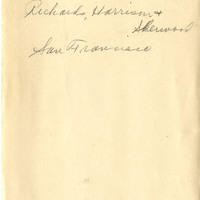 Richards, Harrison &
Sherwood
San Francisco